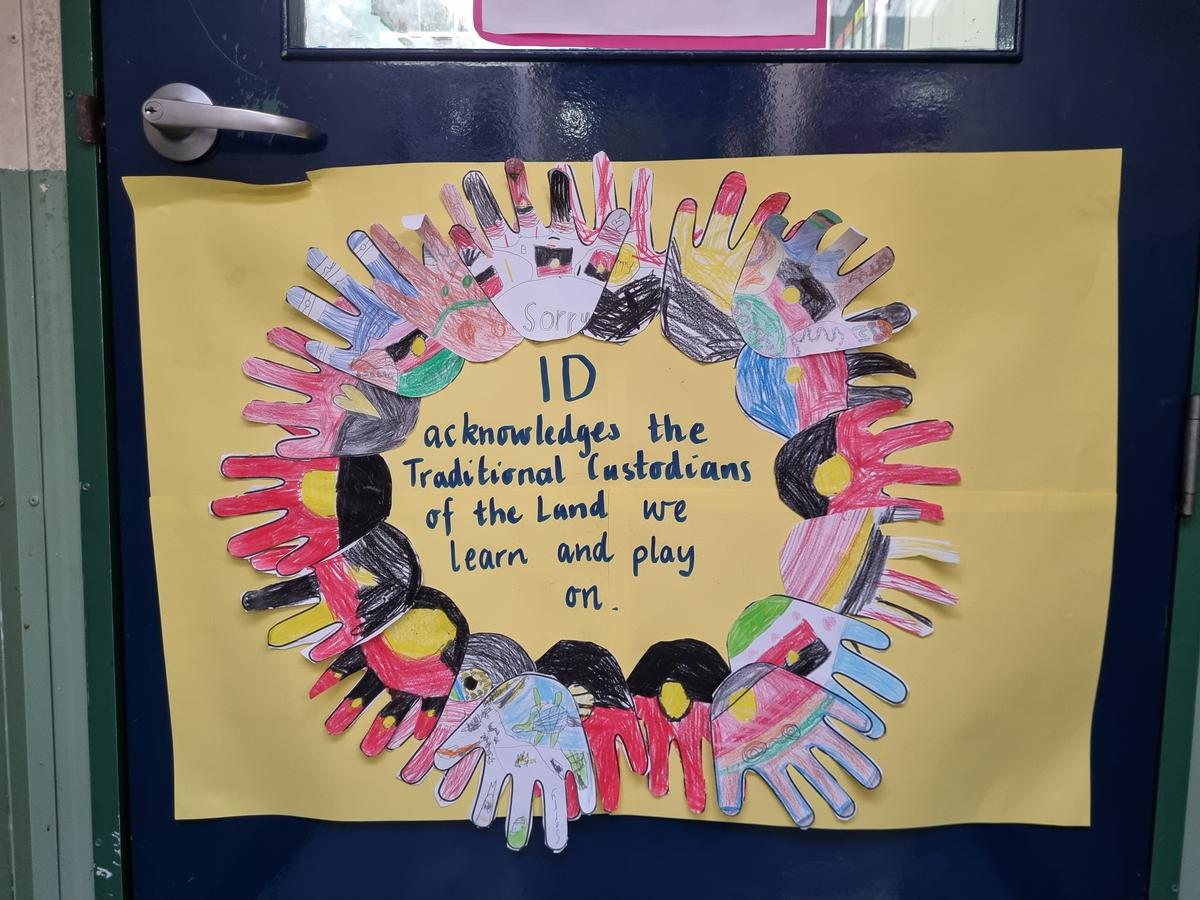 Sorry
1D
acknowledges the
Traditional Custodians
of the Land we
learn and play
on.